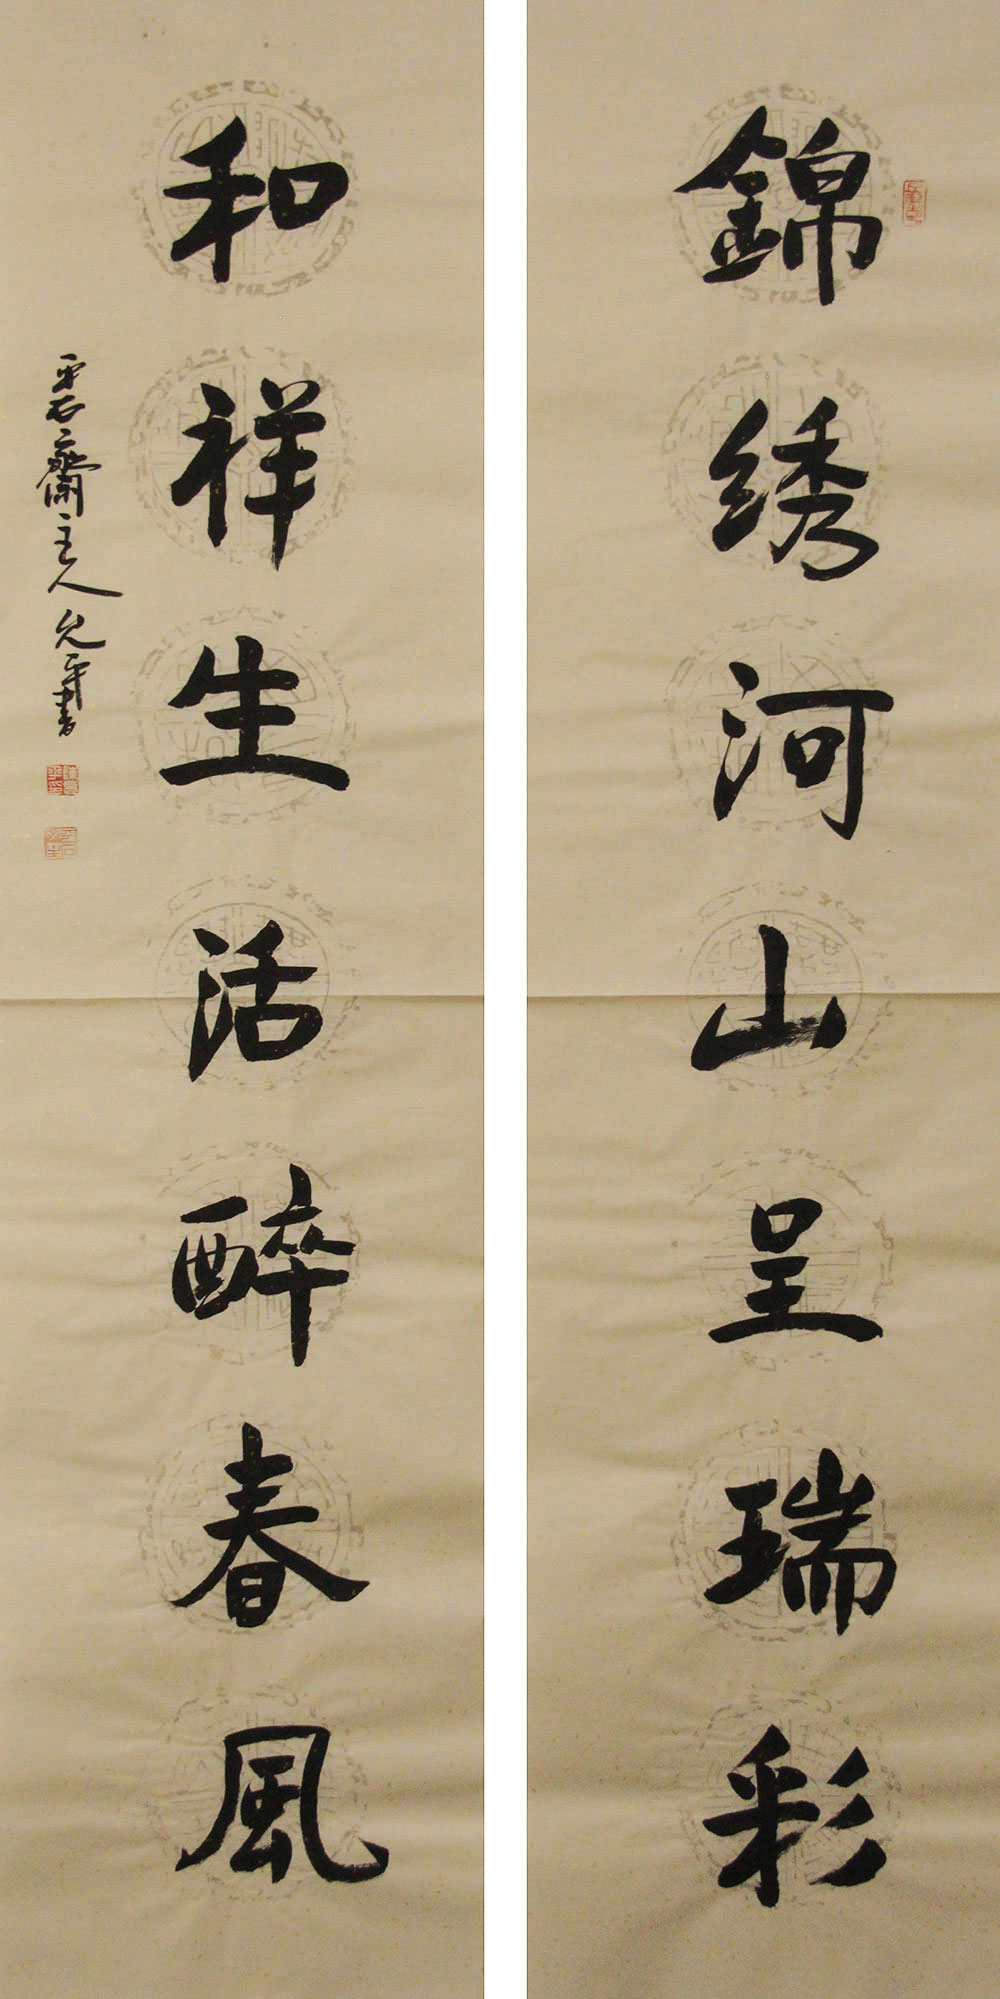 錦绣河山呈瑞彩
和祥生活醉春風
齋主人允平書